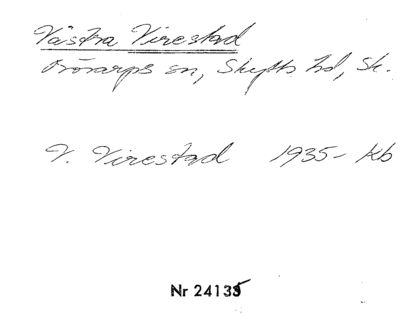 Västra Virestad
Bösarps sn, Skytts hd, Sk.
V. Virestad 1935– Kb
Nr 24135